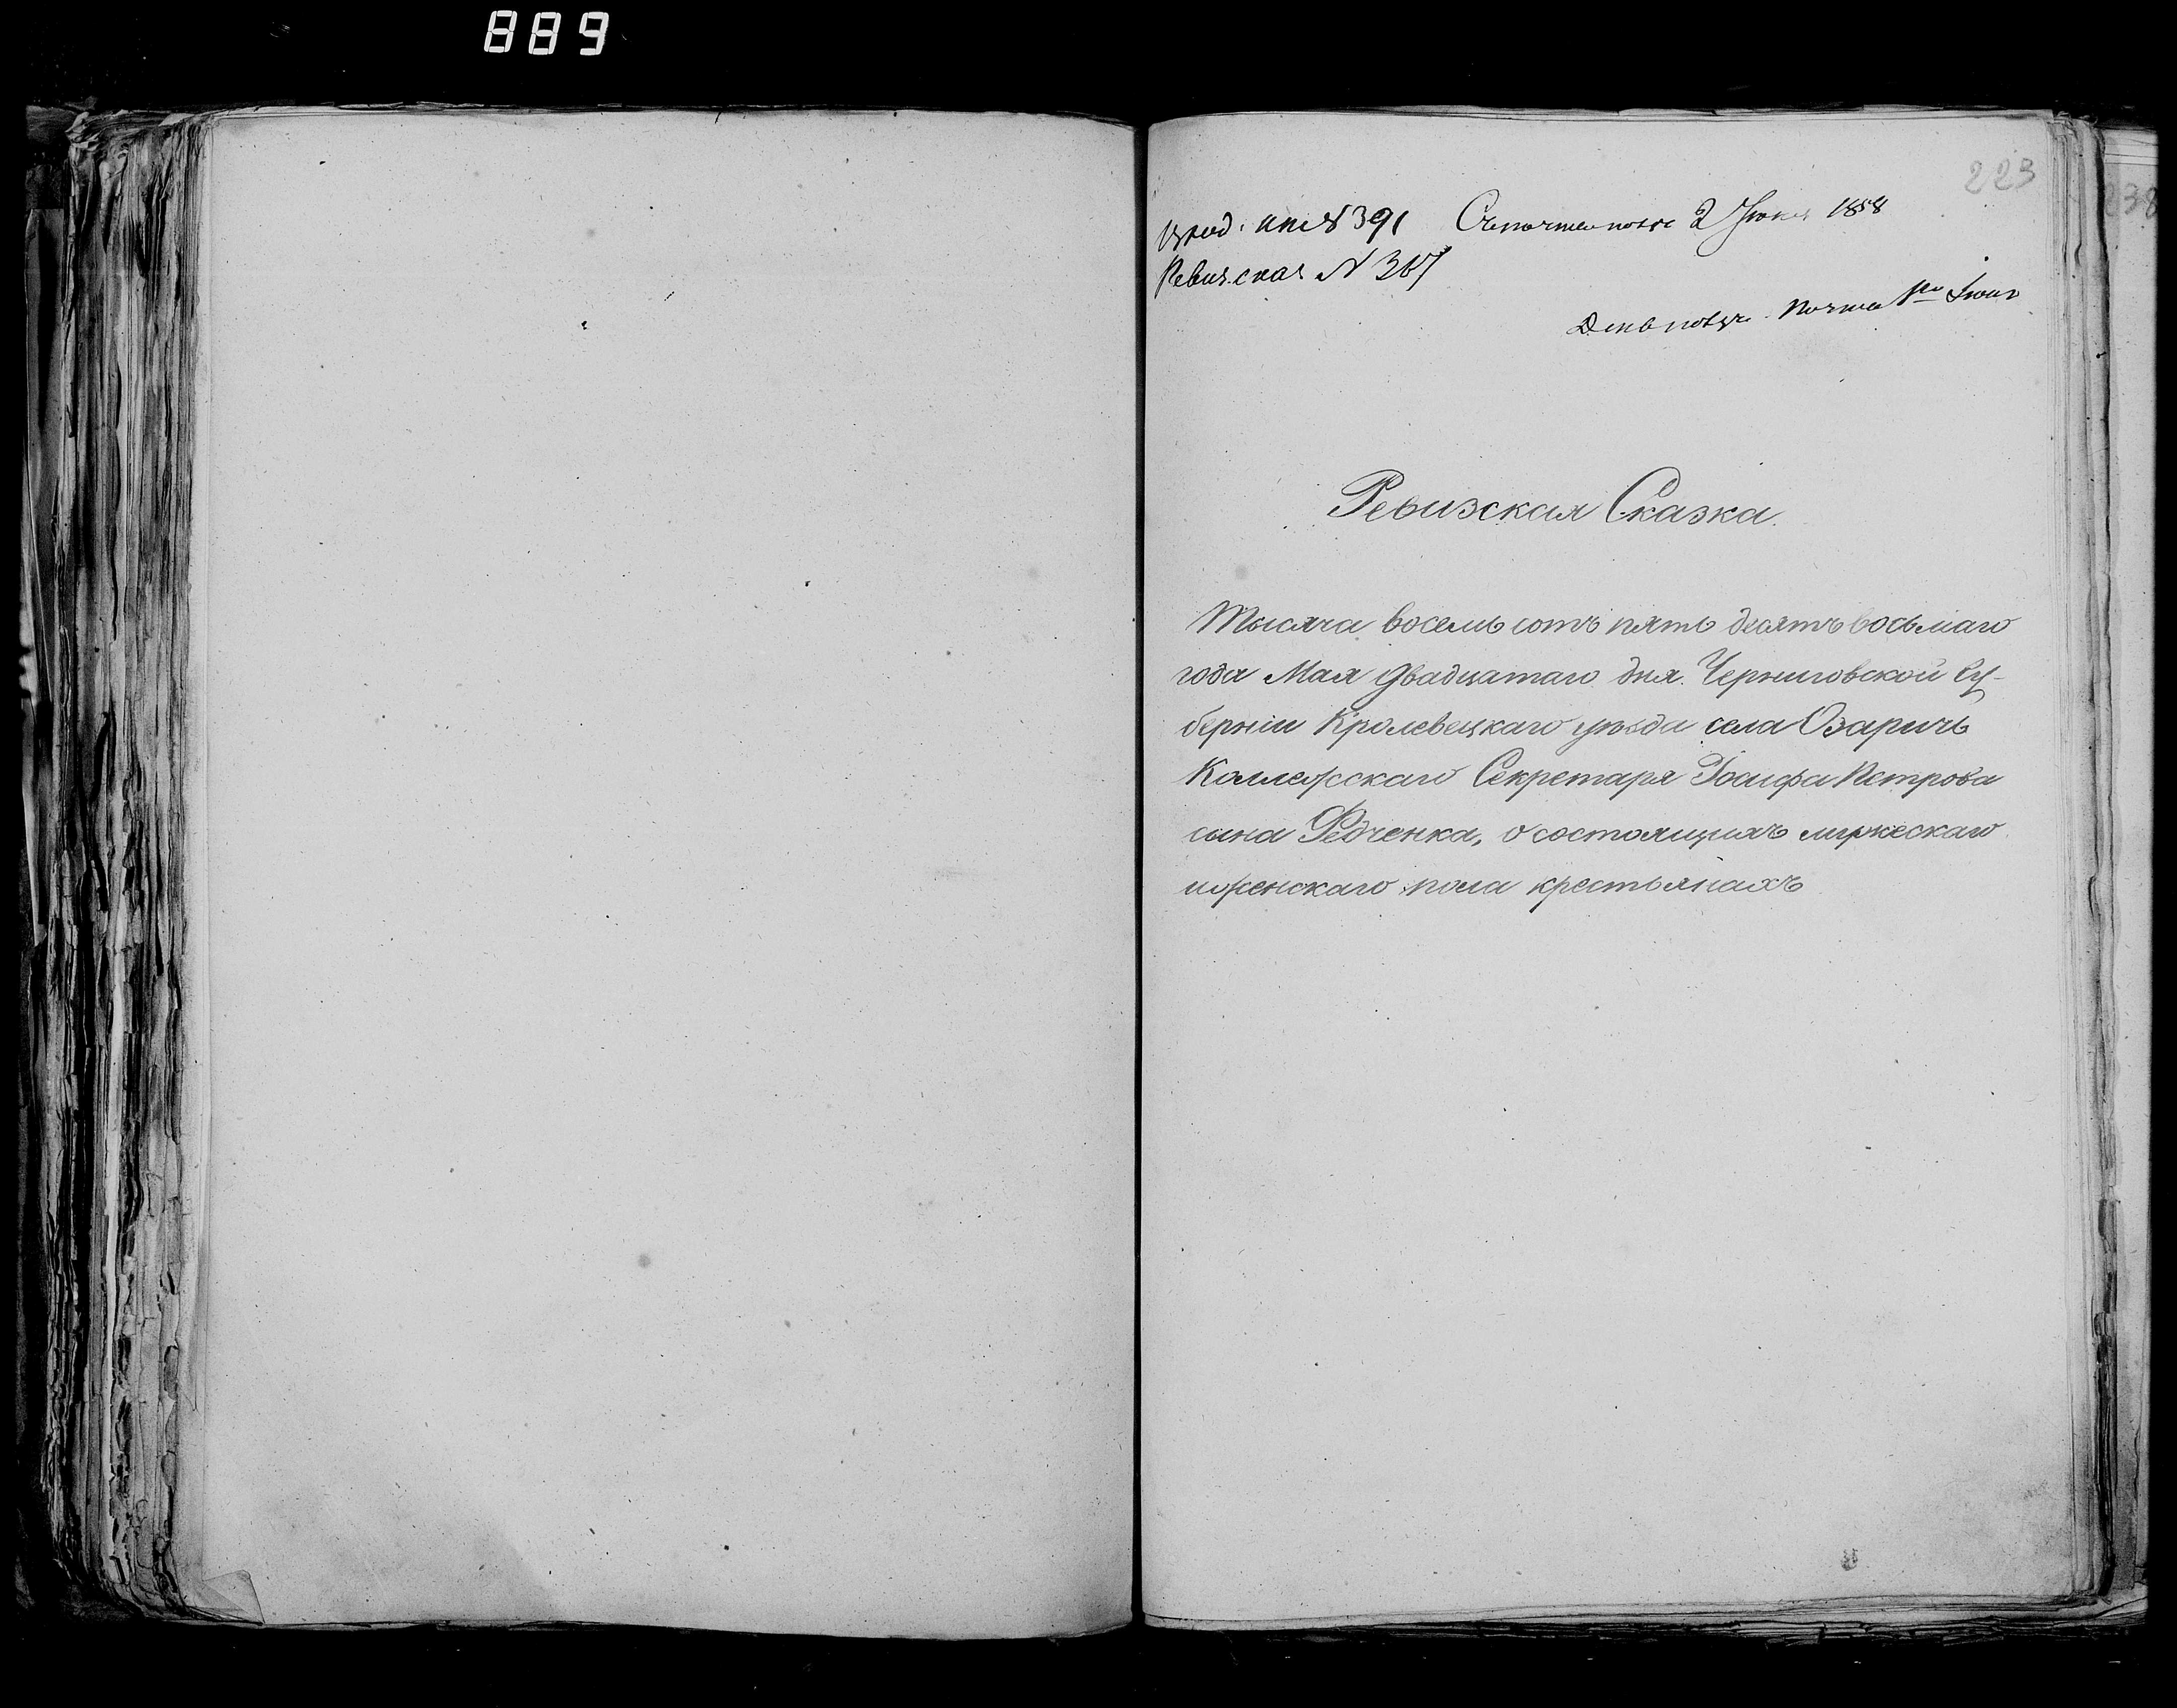 889
223
238
Вход: кн. N 391 Съ почты полу 2 Июня 1858
Ревизская N 367
День получ. Почта 1го Июня
Ревизская Сказка.
Тысяча восемь сотъ пять десятъ восьмаго
года Мая двадцатаго дня. Черниговской Гу-
берніи Кролевецкаго уѣзда села Озаричь
Коллежскаго Секретаря Іосифа Петрова
сына Редченка, о состоящихъ мужескаго
иженскаго пола крестьянахъ